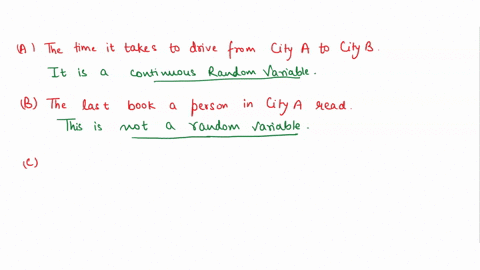 (A) The time it takes to drive from City A to City B.
It is a continuous Random Variable.
(B) The last book a person in City A read.
This is not a random variable.
(C)